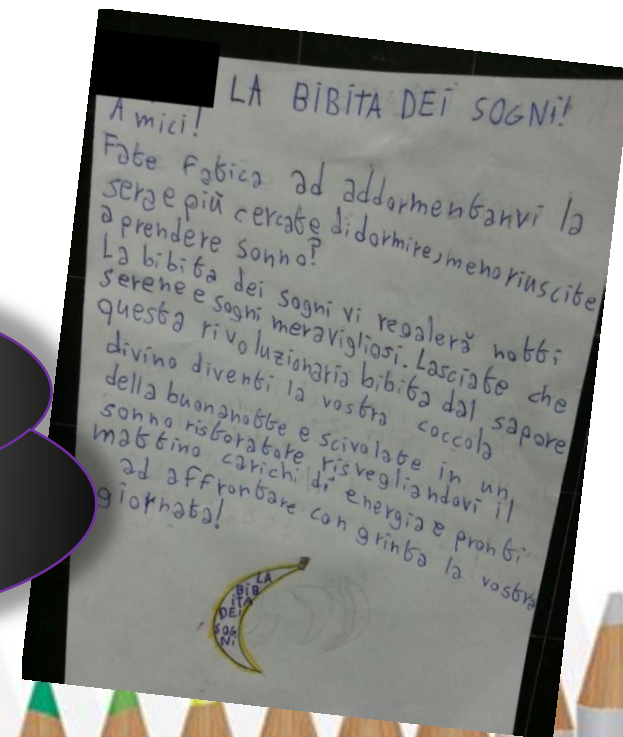 LA BIBITA DEI SOGNI!
Amici!
Fate fatica ad addormentarvi la
sera e più cercate di dormire, meno riuscite
a prendere sonno?
La bibita dei sogni vi regalerà notti
serene e sogni meravigliosi. Lasciate che
questa rivoluzionaria bibita dal sapore
divino diventi la vostra coccola
della buonanotte e scivolate in un
sonno ristoratore risvegliandovi il
mattino carichi di energia e pronti
ad affrontare con grinta la vostra
giornata!
LA
BIB
ITA
DEI
SOG
NI